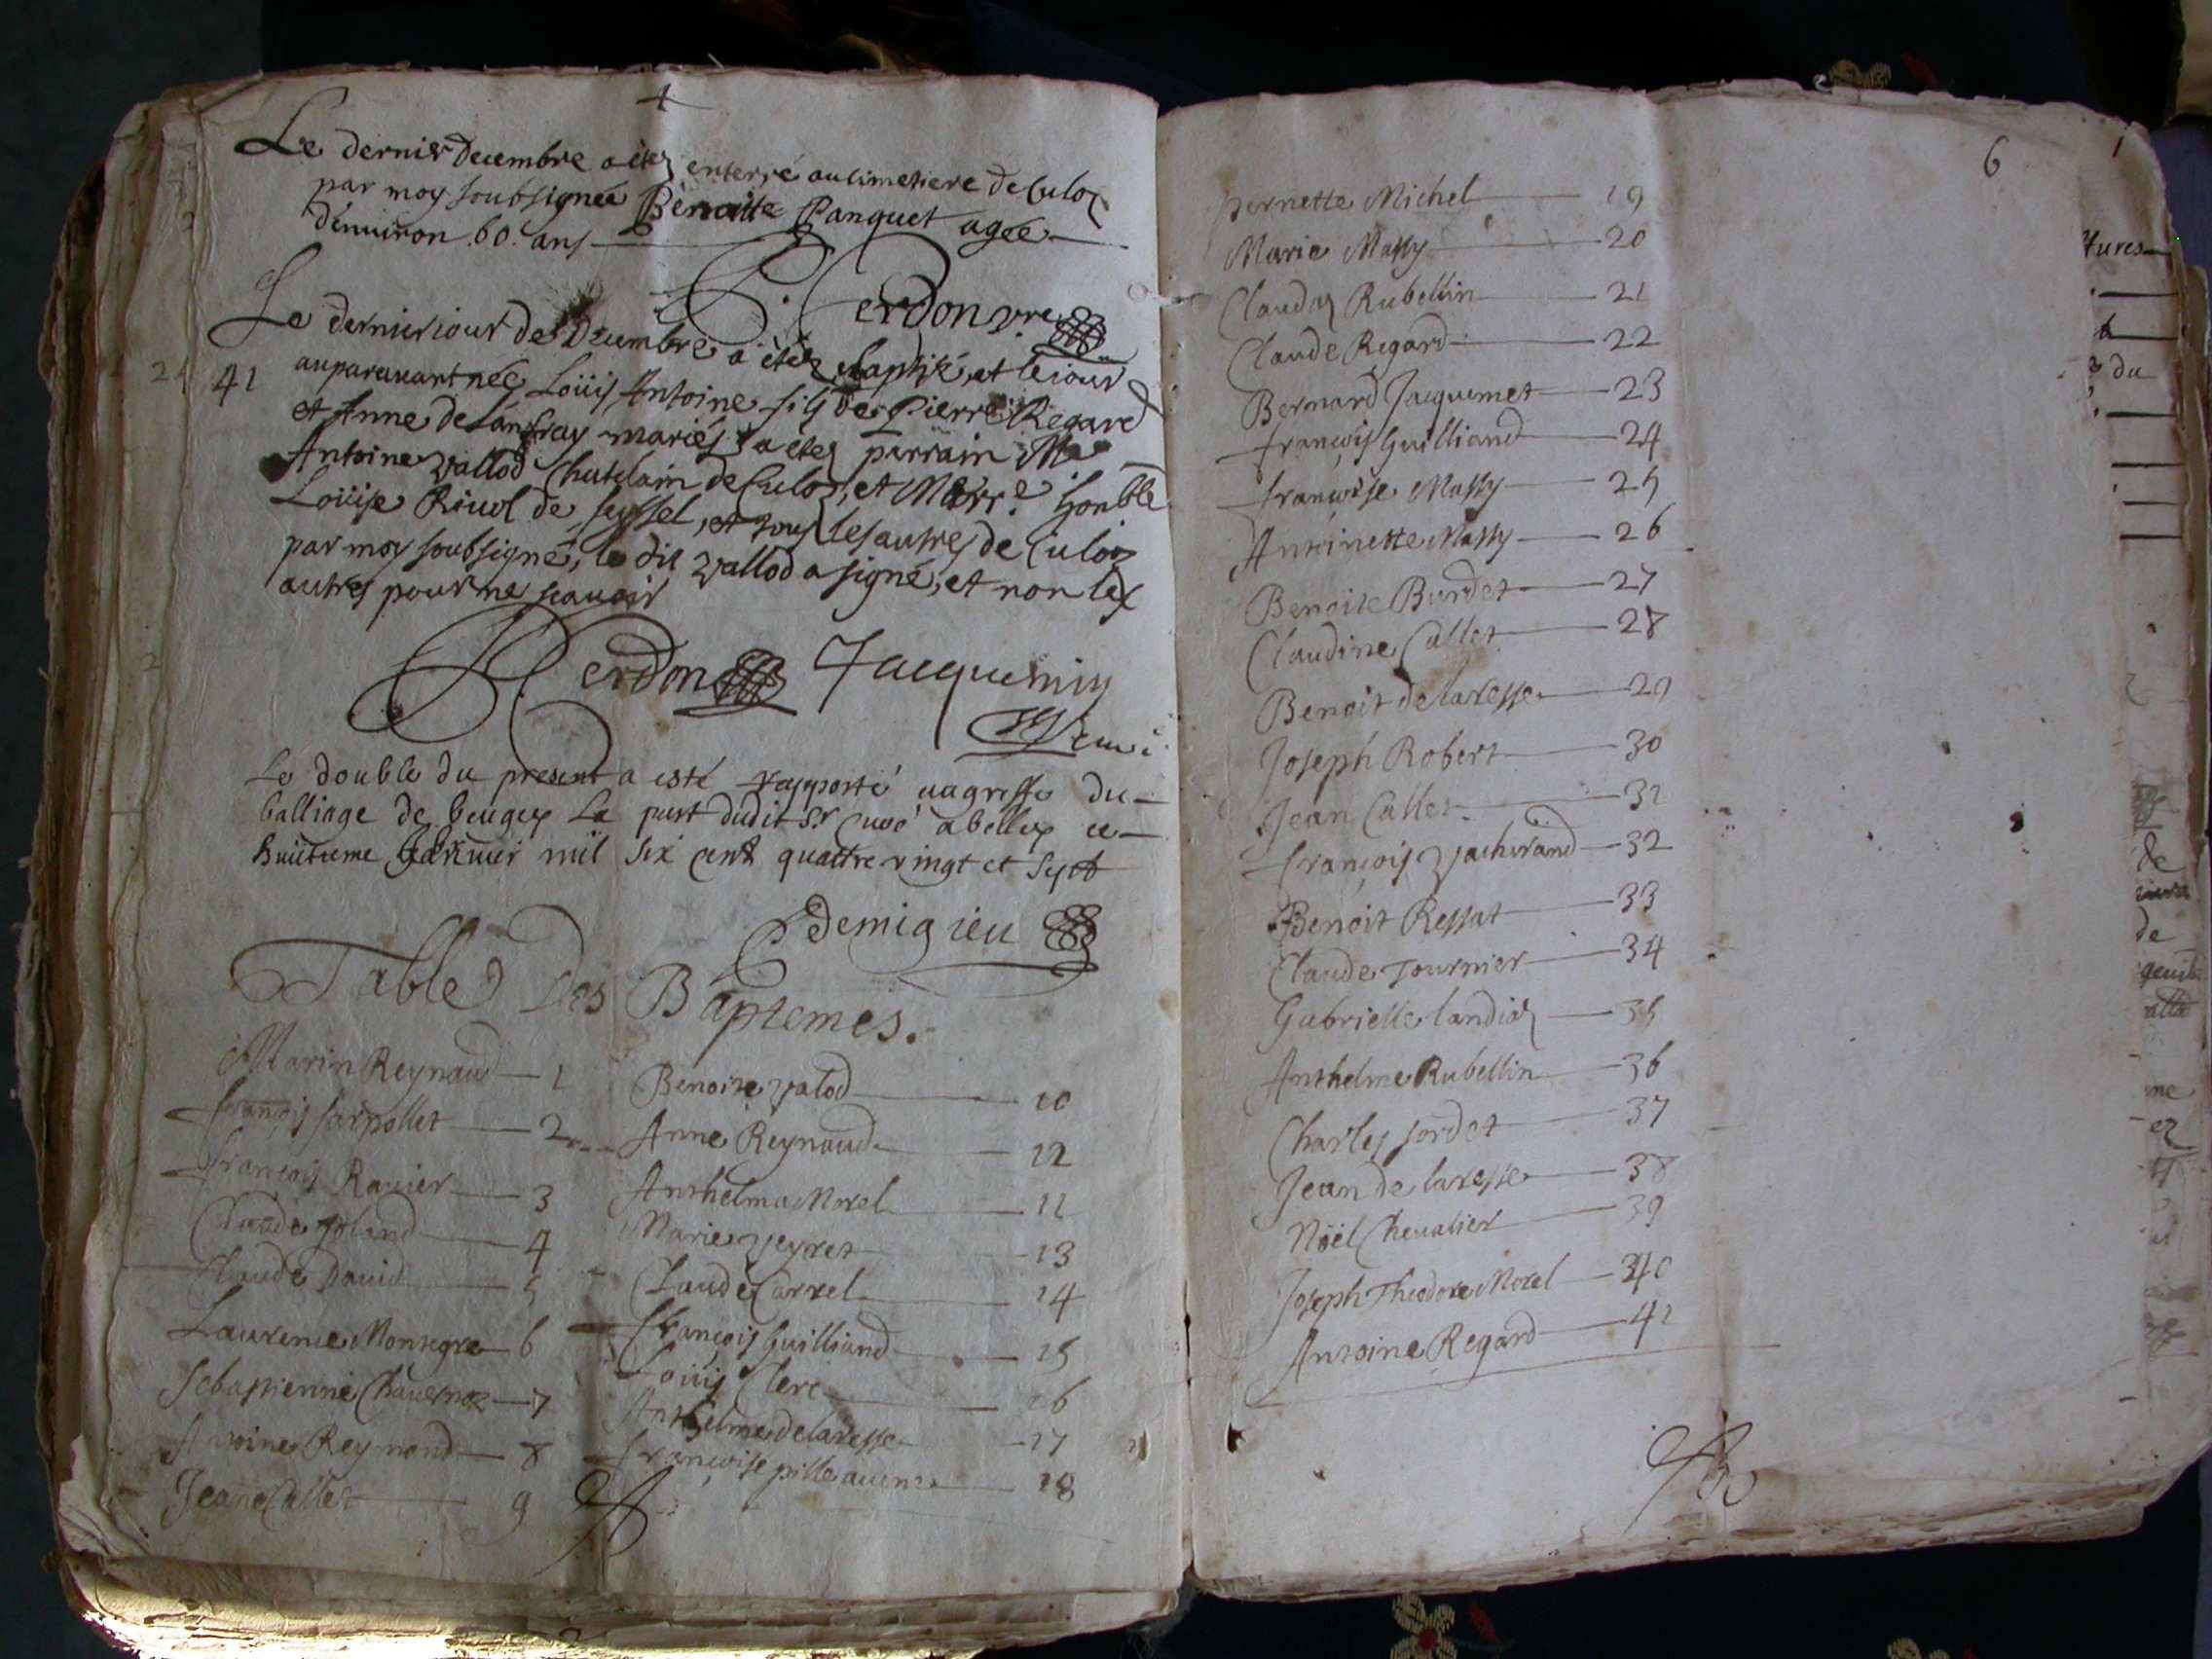 Le dernier Decembre a étez enterré au cimetiere de Culoz
par moy soubsignée Benoite Panquet agée
d'enuiron .60. ans
P. Perdon vre
Le dernier iour de Decembre a étez baptisé, et le iour
41 auparauant née, Loüis Antoine fils de Pierre Regard
et Anne de Lanfray mariés, a étez parrain Mr
Antoine Vallod Chatelain de Culoz, et Marr.e honble
Loüise Riuol de Seyssel, et tous les autres de Culoz
par moy soubsigné, le dit Vallod a signé, et non les
autres pour ne scauoir
P. Perdon Jacquemin
Le double du present a esté rapporté au greffe du
balliage de beugey La part dudit Sr Curé a belley ce
huitieme Januier mil six cent quattre vingt et sept
Demigieu
Table Des Baptemes.
Marin Reynaud 1
françois sarpollet 2
françois Rauier 3
Claude Joland 4
Claude Dauid 5
Laurence Montegre 6
Sebastienne Chauernoz 7
Antoine Reymond 8
Jeanne Callet 9
Benoite Valod 10
Anne Reynaud 12
Anthelma Morel 11
Marie Veyret 13
Claude Carrel 14
François Guilliand 15
Loüis Clerc 16
Anthelme de laresse 17
françoise pille auene 18
6
pernette Michel 19
Marie Massy 20
Claude Rubellin 21
Claude Regard 22
Bernard Jacquemet 23
françois Guilliand 24
françoise Massy 25
Antoinette Massy 26
Benoite Burdet 27
Claudine Callet 28
Benoit de laresse 29
Joseph Robert 30
Jean Callet 31
françois Vacherand 32
Benoit Ressat 33
Claude Tournier 34
Gabrielle landiaz 35
Anthelme Rubellin 36
Charles sordet 37
Jean de laresse 38
Nöel Cheualier 39
Joseph Theodore Morel 40
Antoine Regard 41